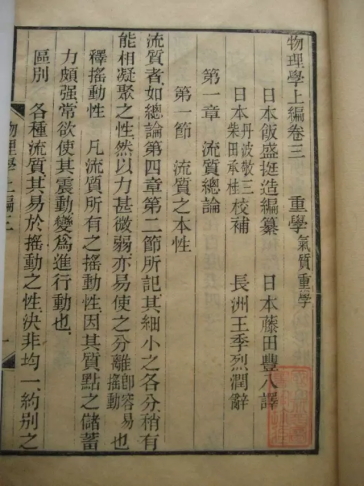 物理學上編卷三　重學　氣質重學
日本飯盛挺造編纂　日本藤田豐八譯
日本丹波敬三　柴田承桂校補　長洲王季烈潤辭
第一章　流質總論
第一節　流質之本性
流質者如總論第四章第二節所記其細小之各分稍有
能相凝聚之性然以力甚微弱亦易使之分離即容易搖動也
釋搖動性　凡流質所有之搖動性因其質點之儲蓄
力頗强常欲使其震動變爲進行動也
區別　各種流質其易於搖動之性決非均一約別之
物理學上編三
一